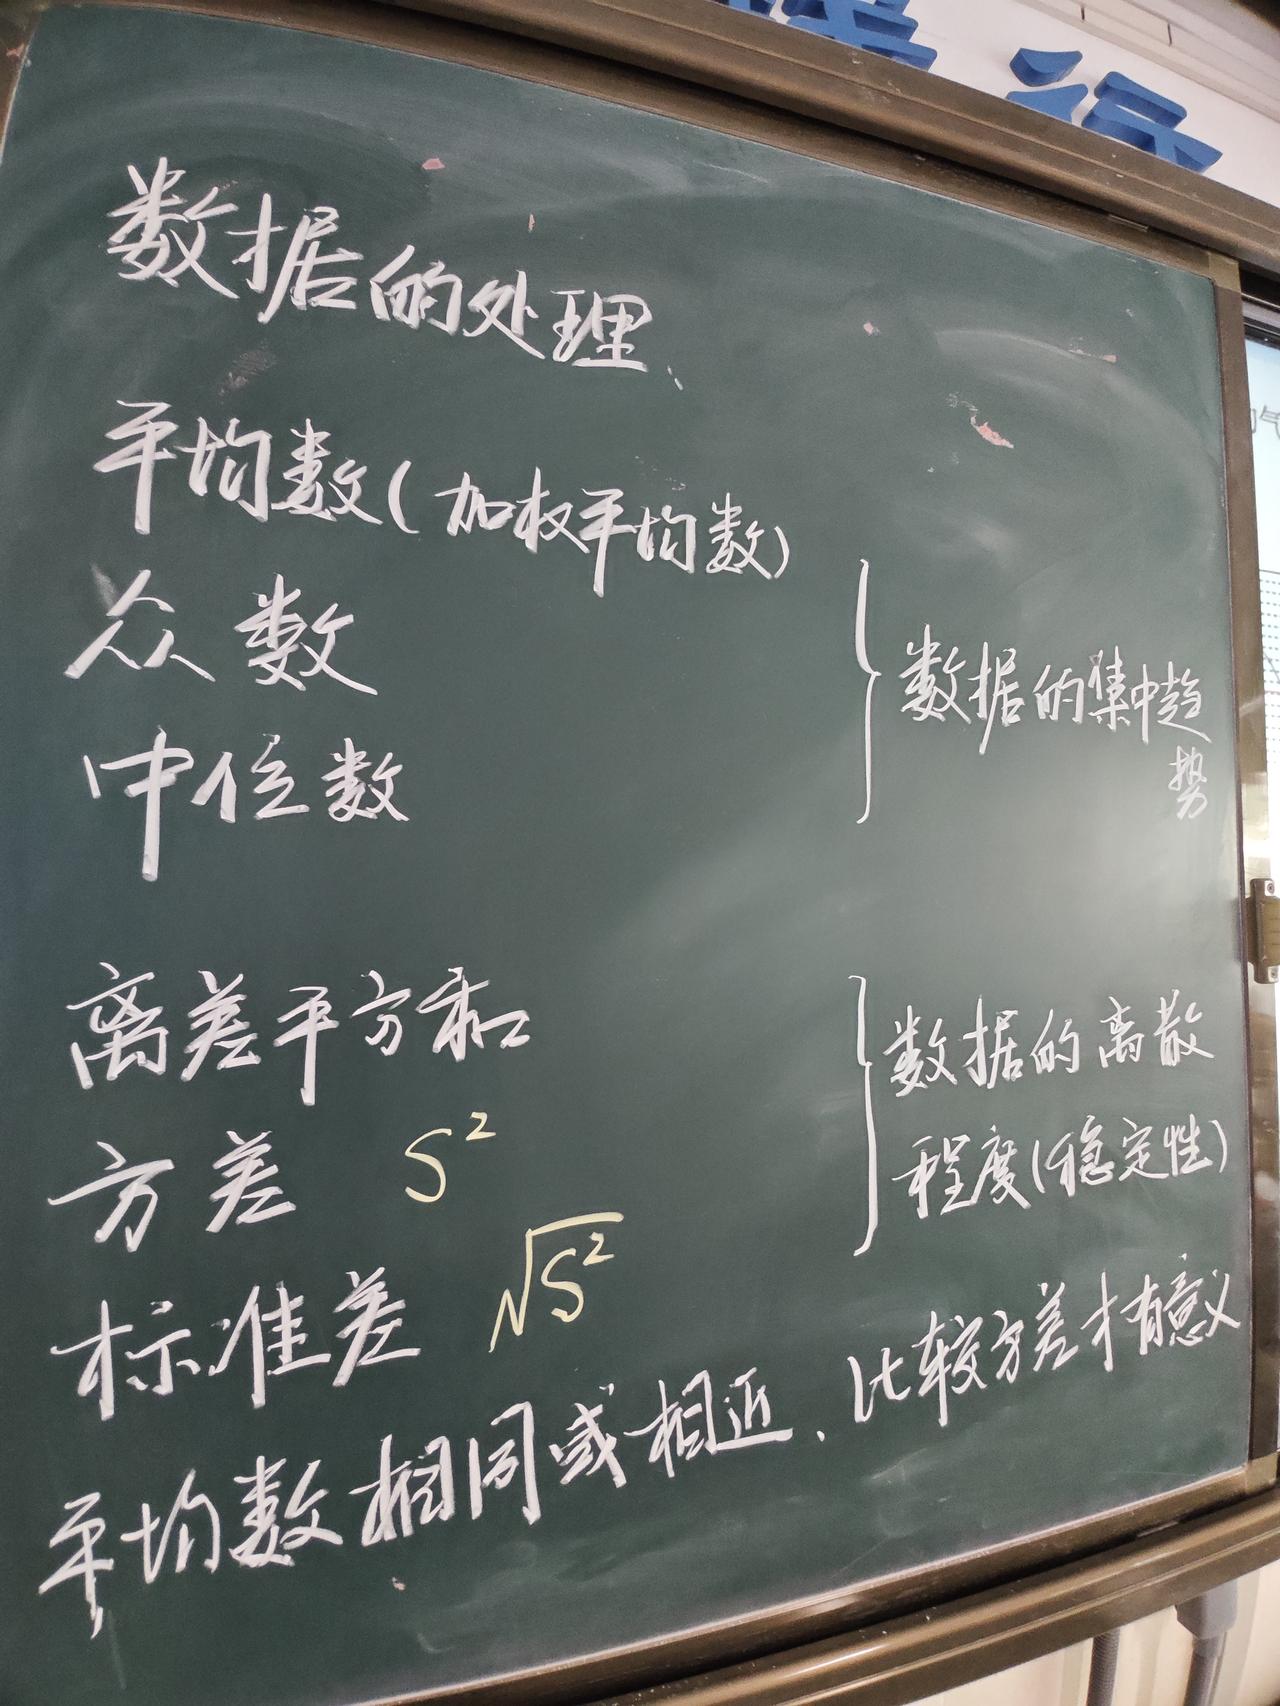 数据的处理
平均数(加权平均数)
众数
中位数
数据的集中趋
势
离差平方和
方差 S²
标准差 √S²
数据的离散
程度(稳定性)
平均数相同或相近、比较方差才有意义